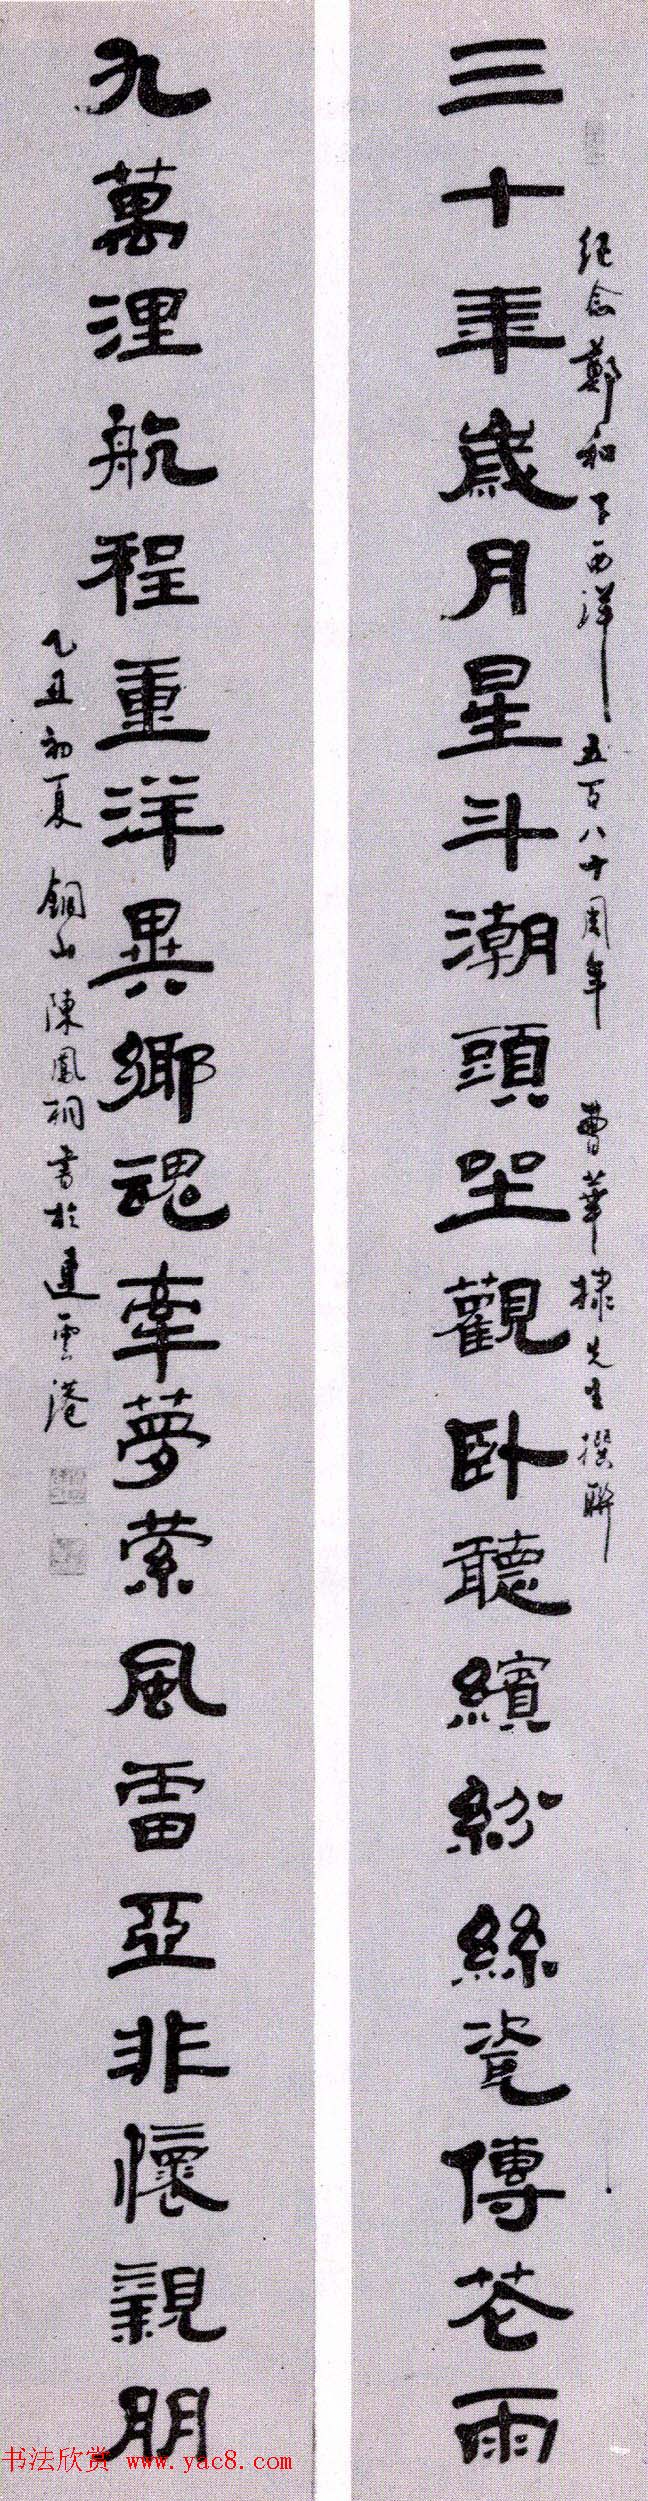 紀念鄭和下西洋五百八十周年 曹華棣先生撰聯
三十年歲月星斗潮頭坐觀卧聽繽紛絲瓷傳花雨
九萬浬航程重洋異鄉魂牽夢縈風雷亞非懷親朋
乙丑初夏 銅山陳鳳桐書於連雲港
书法欣赏 www.yac8.com